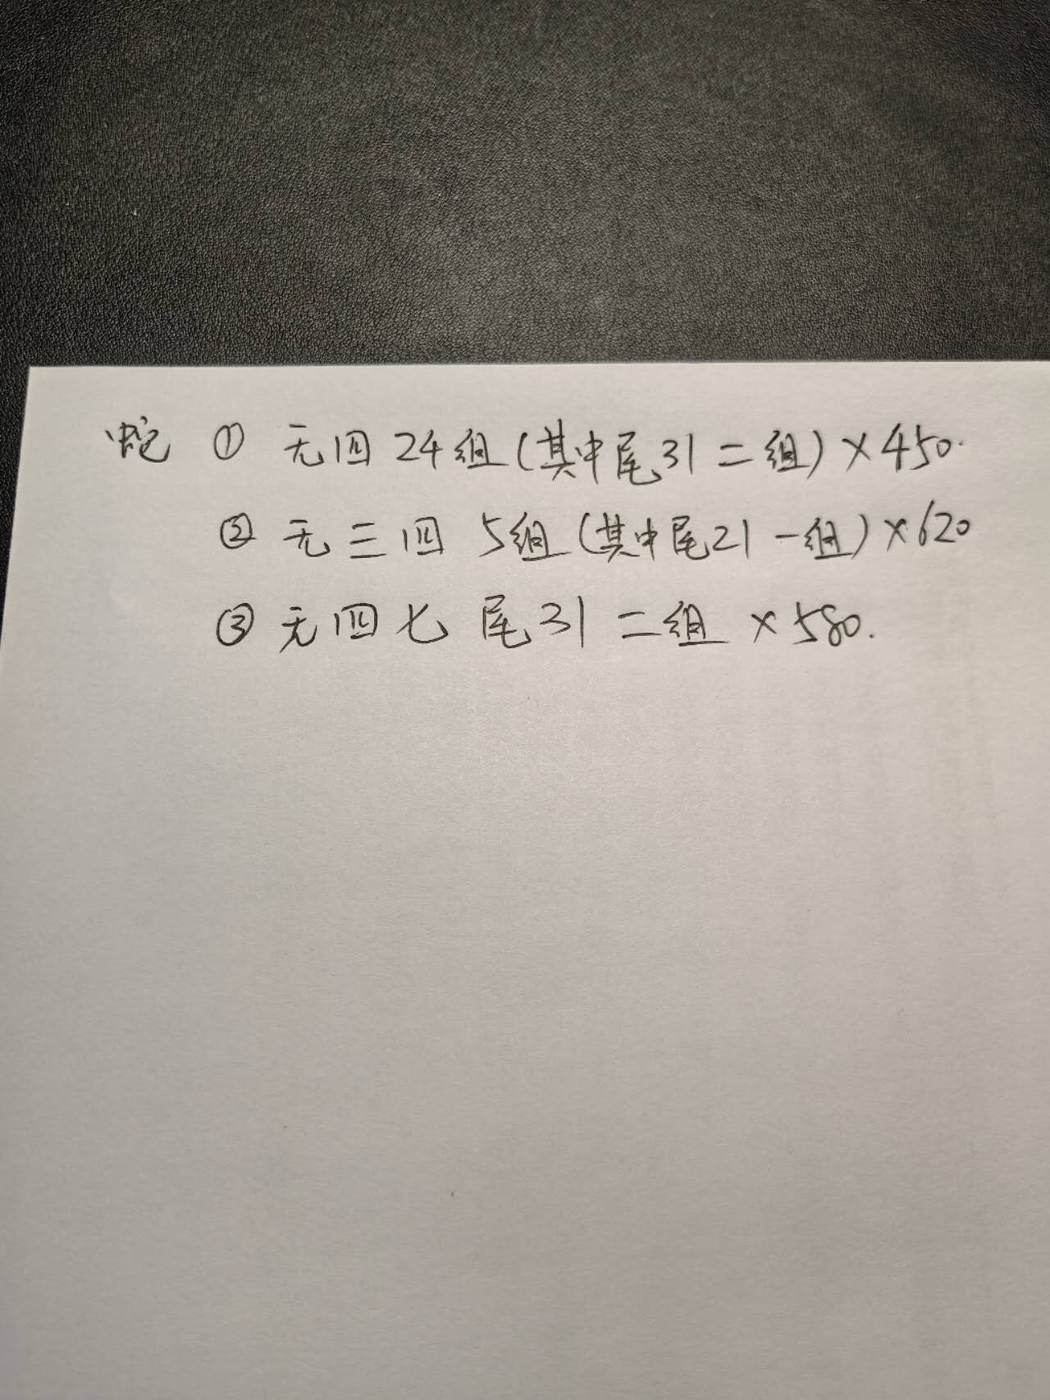 蛇 ① 无四 24组(其中尾31二组)×450.
② 无三四 5组(其中尾21一组)×620
③ 无四七 尾31 二组 ×580.